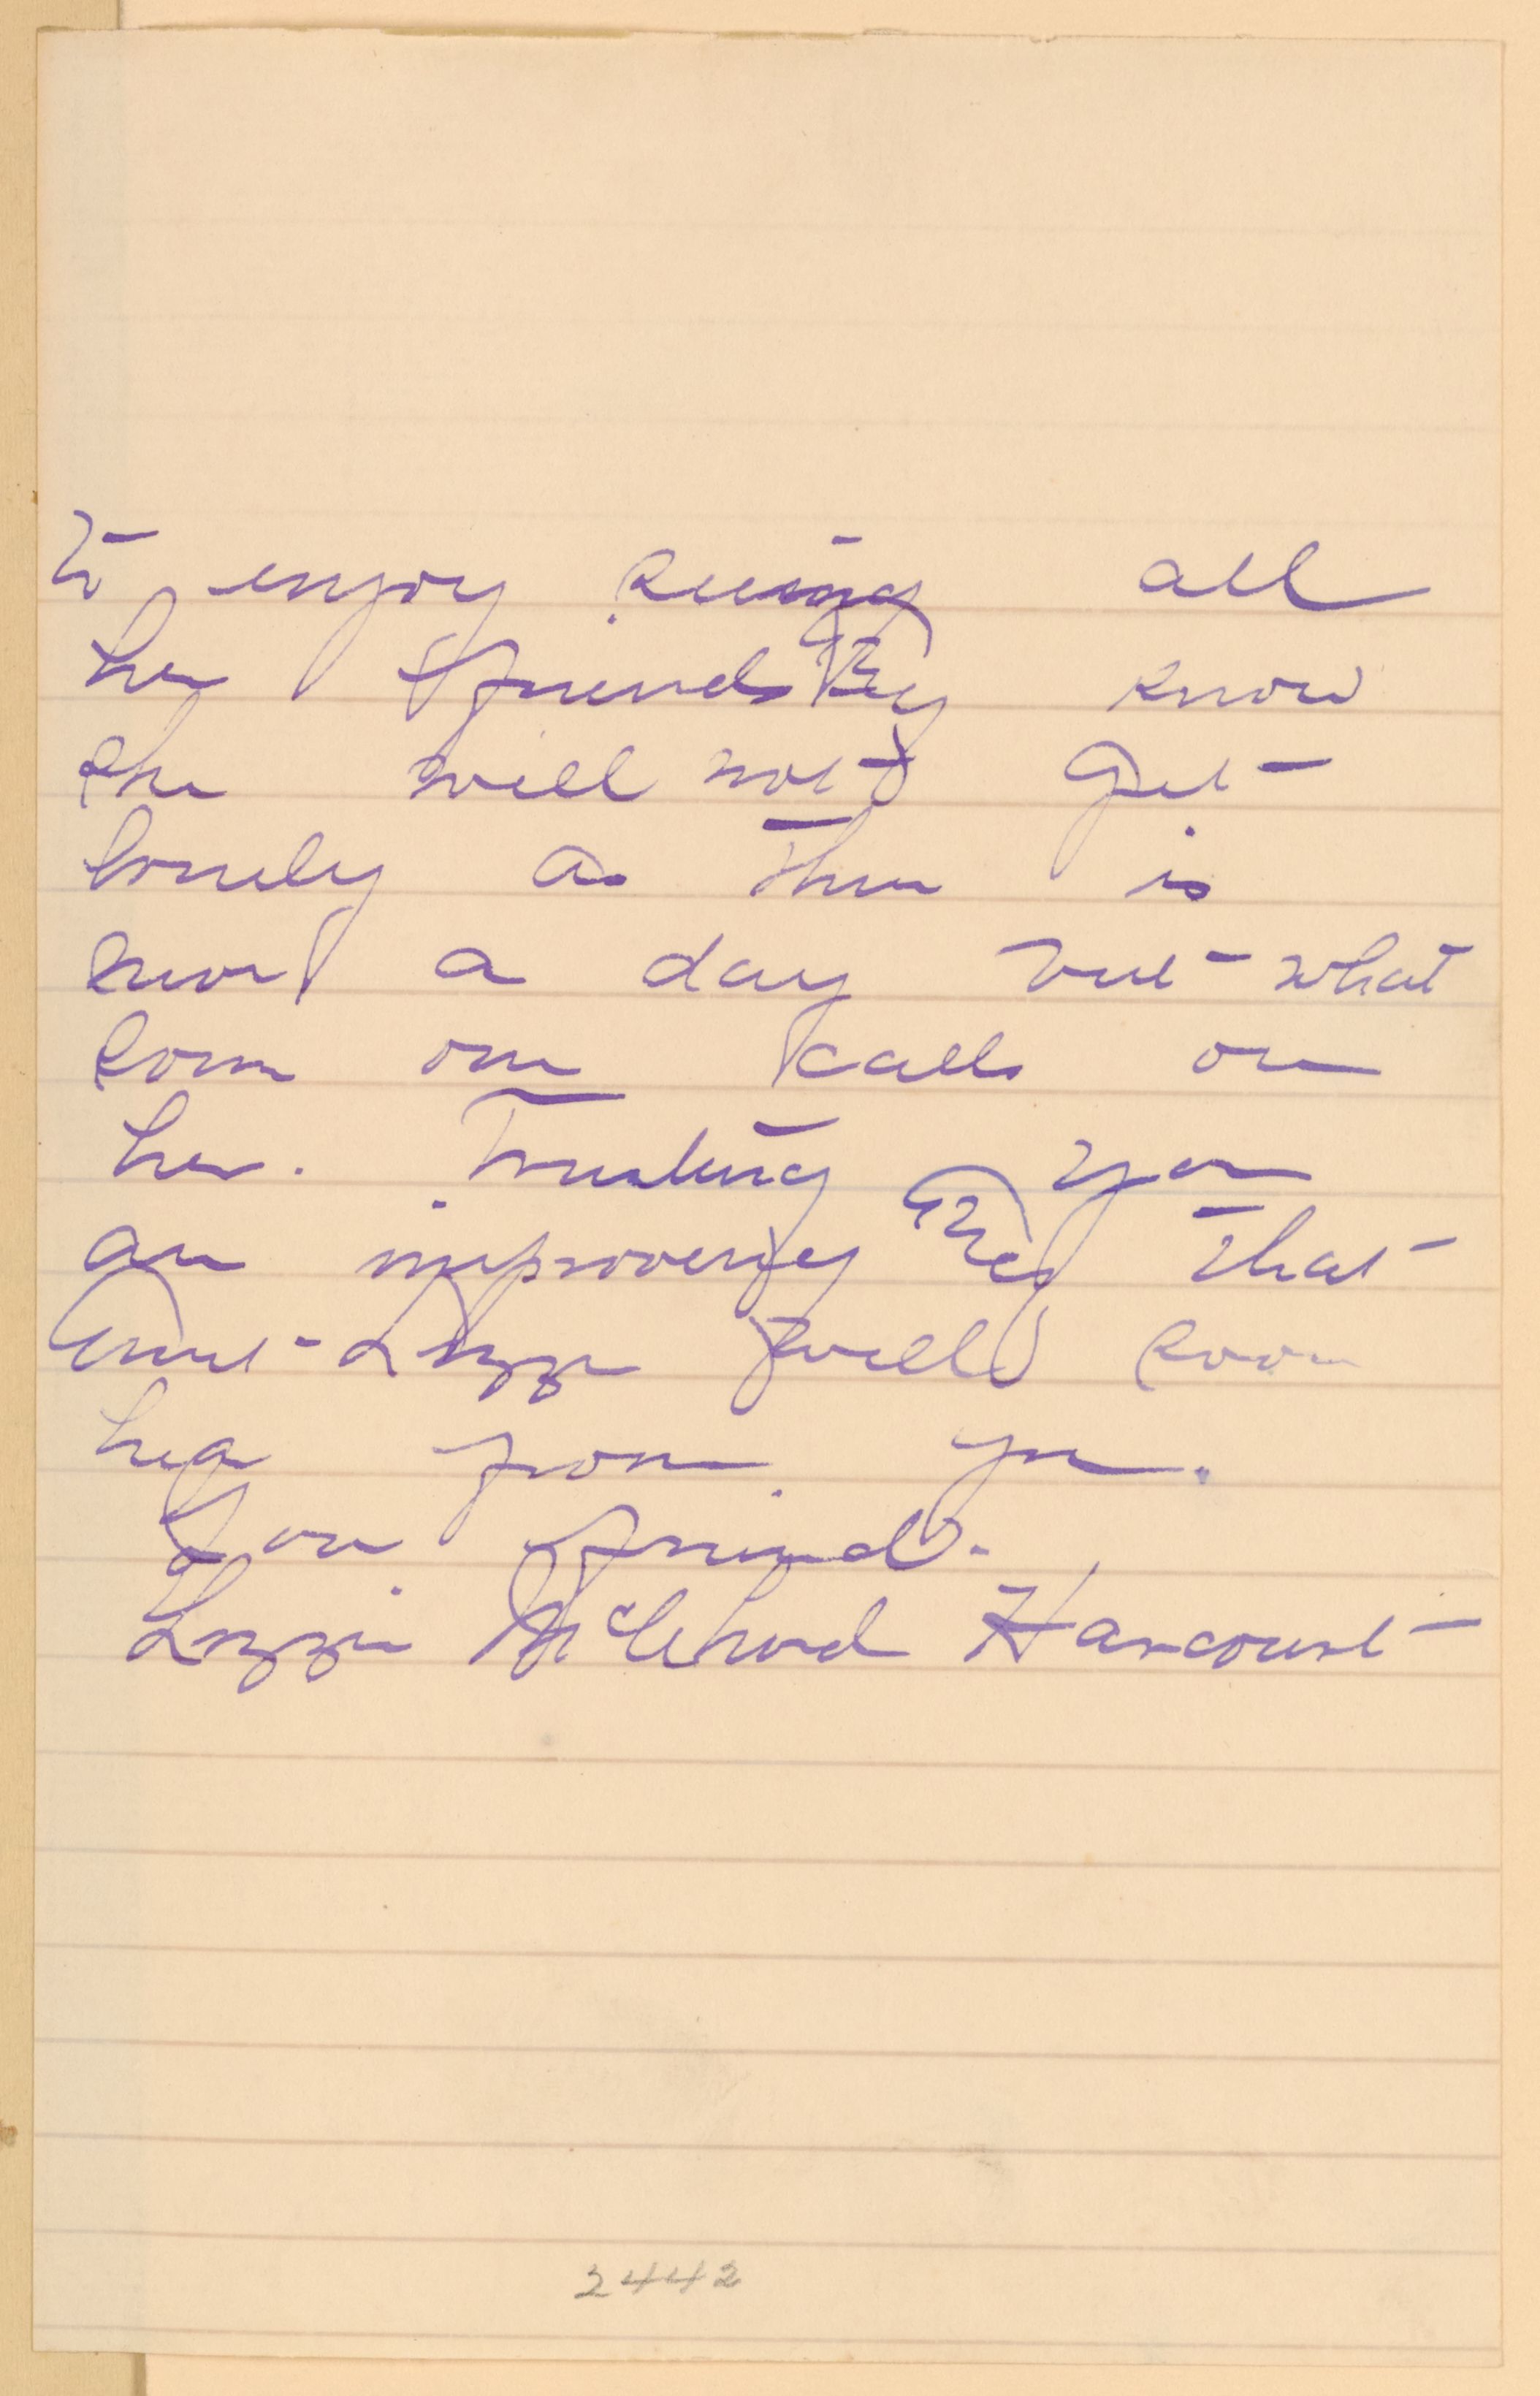 to enjoy seeing all
her friends I know
she will not get
lonely as there is
never a day but what
some one calls on
her. Trusting you
are improving and that
Aunt Lizzie will soon
hear from you.
Your friend.
Lizzie McLeod Harcourt
2442